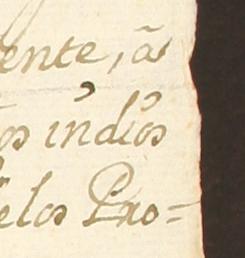 ente, ã
os indios
elos Pro=